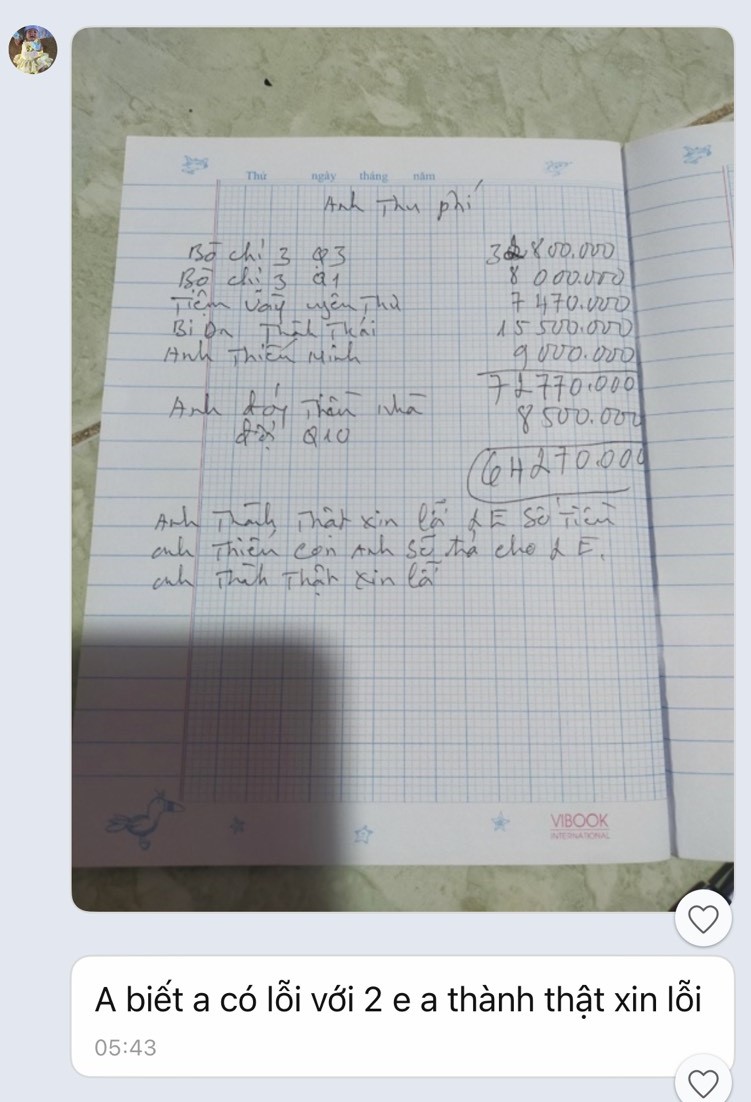 Thứ ngày tháng năm
Anh Thu phí
Bồ chí 3 Q3 32 800.000
Bồ chí 3 Q1 8 000.000
Tiệm Váy uyên Thư 7 470.000
Bi Da Thái 15 500.000
Anh Thiếu Minh 9 000.000
72 770.000
Anh đóng Tiền nhà 8 500.000
Q10
64 270.000
Anh Thành Thật xin lỗi 2 E Số Tiền
anh Thiếu con Anh sẽ trả cho 2 E.
anh Thành Thật xin lỗi
VIBOOK
INTERNATIONAL
A biết a có lỗi với 2 e a thành thật xin lỗi
05:43